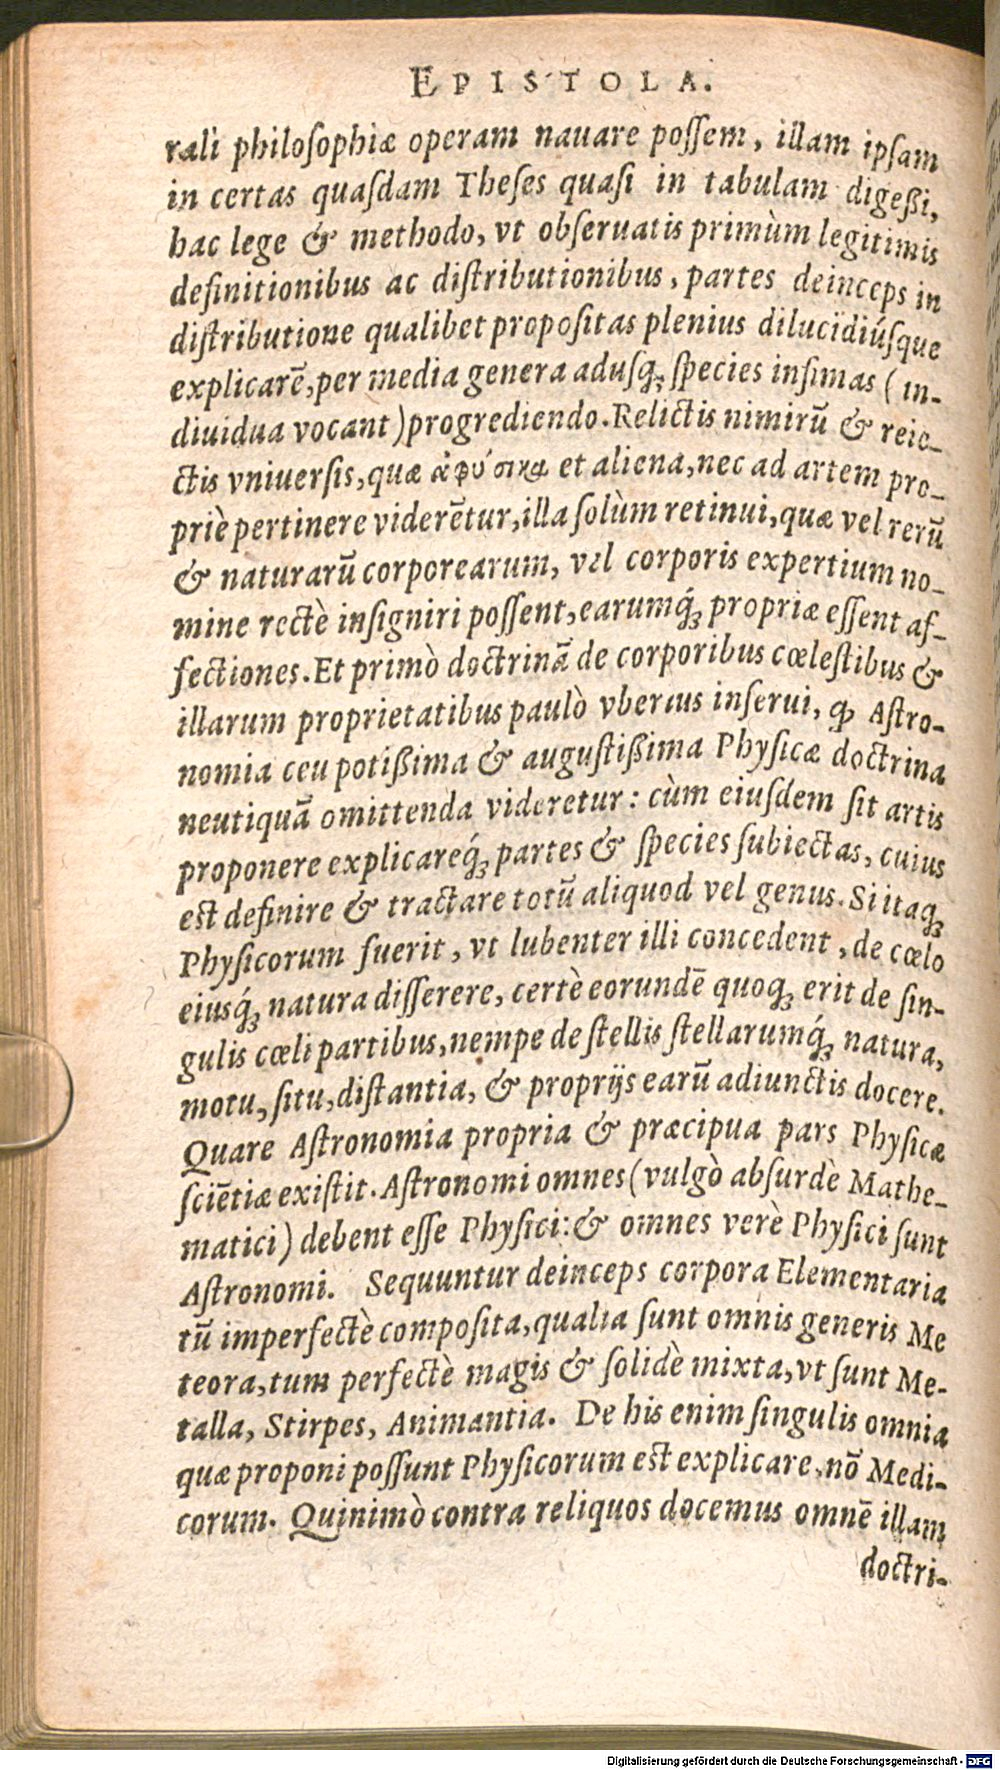 EPISTOLA.
rali philoſophiæ operam nauare poſſem, illam ipſam
in certas quaſdam Theſes quaſi in tabulam digeßi,
hac lege & methodo, vt obſeruatis primùm legitimis
definitionibus ac diſtributionibus, partes deinceps in
diſtributione qualibet propoſitas plenius dilucidiúſque
explicarē, per media genera aduſq; ſpecies infimas (in-
diuidua vocant) progrediendo. Relictis nimirū & reie-
ctis vniuerſis, quæ ἀφύσικα et aliena, nec ad artem pro-
priè pertinere viderētur, illa ſolùm retinui, quæ vel rerū
& naturarū corporearum, vel corporis expertium no-
mine rectè inſigniri poſſent, earumq́; propriæ eſſent af-
fectiones. Et primò doctrinā de corporibus cœleſtibus &
illarum proprietatibus paulò vberius inſerui, ꝙ Aſtro-
nomia ceu potißima & auguſtißima Phyſicæ doctrina
neutiquā omittenda videretur: cùm eiuſdem ſit artis
proponere explicareq́; partes & ſpecies ſubiectas, cuius
est definire & tractare totū aliquod vel genus. Si itaq;
Phyſicorum fuerit, vt lubenter illi concedent, de cœlo
eiusq́; natura diſſerere, certè eorundē quoq; erit de ſin-
gulis cœli partibus, nempe de ſtellis ſtellarumq́; natura,
motu, ſitu, diſtantia, & proprijs earū adiunctis docere.
Quare Aſtronomia propria & præcipua pars Phyſicæ
ſciētiæ exiſtit. Aſtronomi omnes (vulgò abſurdè Mathe-
matici) debent eſſe Phyſici: & omnes verè Phyſici ſunt
Aſtronomi. Sequuntur deinceps corpora Elementaria
tū imperfectè compoſita, qualia ſunt omnis generis Me
teora, tum perfectè magis & ſolidè mixta, vt ſunt Me-
talla, Stirpes, Animantia. De his enim ſingulis omnia
quæ proponi poſſunt Phyſicorum est explicare, nō Medi-
corum. Quinimò contra reliquos docemus omnē illam
doctri-
Digitalisierung gefördert durch die Deutsche Forschungsgemeinschaft - DFG